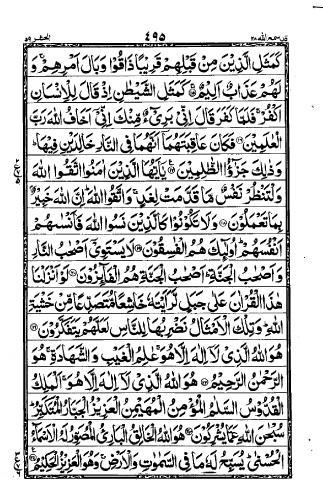 قد سمع الله ٢٨ ٤٩٥ الحشر ٥٩
كَمَثَلِ الَّذِيْنَ مِنْ قَبْلِهِمْ قَرِيْبًا ذَاقُوْا وَبَالَ اَمْرِهِمْ ۚ وَ
لَهُمْ عَذَابٌ اَلِيْمٌ ۝١٥ كَمَثَلِ الشَّيْطٰنِ اِذْ قَالَ لِلْاِنْسَانِ
اكْفُرْ ۚ فَلَمَّا كَفَرَ قَالَ اِنِّىْ بَرِىْٓءٌ مِّنْكَ اِنِّىْٓ اَخَافُ اللّٰهَ رَبَّ
الْعٰلَمِيْنَ ۝١٦ فَكَانَ عَاقِبَتَهُمَآ اَنَّهُمَا فِى النَّارِ خَالِدَيْنِ فِيْهَا ؕ
وَذٰلِكَ جَزٰٓؤُا الظّٰلِمِيْنَ ۝١٧ يٰٓاَيُّهَا الَّذِيْنَ اٰمَنُوا اتَّقُوا اللّٰهَ
وَلْتَنْظُرْ نَفْسٌ مَّا قَدَّمَتْ لِغَدٍ ۚ وَاتَّقُوا اللّٰهَ ؕ اِنَّ اللّٰهَ خَبِيْرٌۢ
بِمَا تَعْمَلُوْنَ ۝١٨ وَلَا تَكُوْنُوْا كَالَّذِيْنَ نَسُوا اللّٰهَ فَاَنْسٰىهُمْ
اَنْفُسَهُمْ ؕ اُولٰٓئِكَ هُمُ الْفٰسِقُوْنَ ۝١٩ لَا يَسْتَوِىْٓ اَصْحٰبُ النَّارِ
وَ اَصْحٰبُ الْجَنَّةِ ؕ اَصْحٰبُ الْجَنَّةِ هُمُ الْفَآئِزُوْنَ ۝٢٠ لَوْ اَنْزَلْنَا
هٰذَا الْقُرْاٰنَ عَلٰى جَبَلٍ لَّرَاَيْتَهٗ خَاشِعًا مُّتَصَدِّعًا مِّنْ خَشْيَةِ
اللّٰهِ ؕ وَتِلْكَ الْاَمْثَالُ نَضْرِبُهَا لِلنَّاسِ لَعَلَّهُمْ يَتَفَكَّرُوْنَ ۝٢١
هُوَ اللّٰهُ الَّذِىْ لَآ اِلٰهَ اِلَّا هُوَ ۚ عٰلِمُ الْغَيْبِ وَالشَّهَادَةِ ۚ هُوَ
الرَّحْمٰنُ الرَّحِيْمُ ۝٢٢ هُوَ اللّٰهُ الَّذِىْ لَآ اِلٰهَ اِلَّا هُوَ ۚ اَلْمَلِكُ
الْقُدُّوْسُ السَّلٰمُ الْمُؤْمِنُ الْمُهَيْمِنُ الْعَزِيْزُ الْجَبَّارُ الْمُتَكَبِّرُ ؕ
سُبْحٰنَ اللّٰهِ عَمَّا يُشْرِكُوْنَ ۝٢٣ هُوَ اللّٰهُ الْخَالِقُ الْبَارِئُ الْمُصَوِّرُ لَهُ الْاَسْمَآءُ
الْحُسْنٰى ؕ يُسَبِّحُ لَهٗ مَا فِى السَّمٰوٰتِ وَالْاَرْضِ ۚ وَهُوَ الْعَزِيْزُ الْحَكِيْمُ ۝٢٤